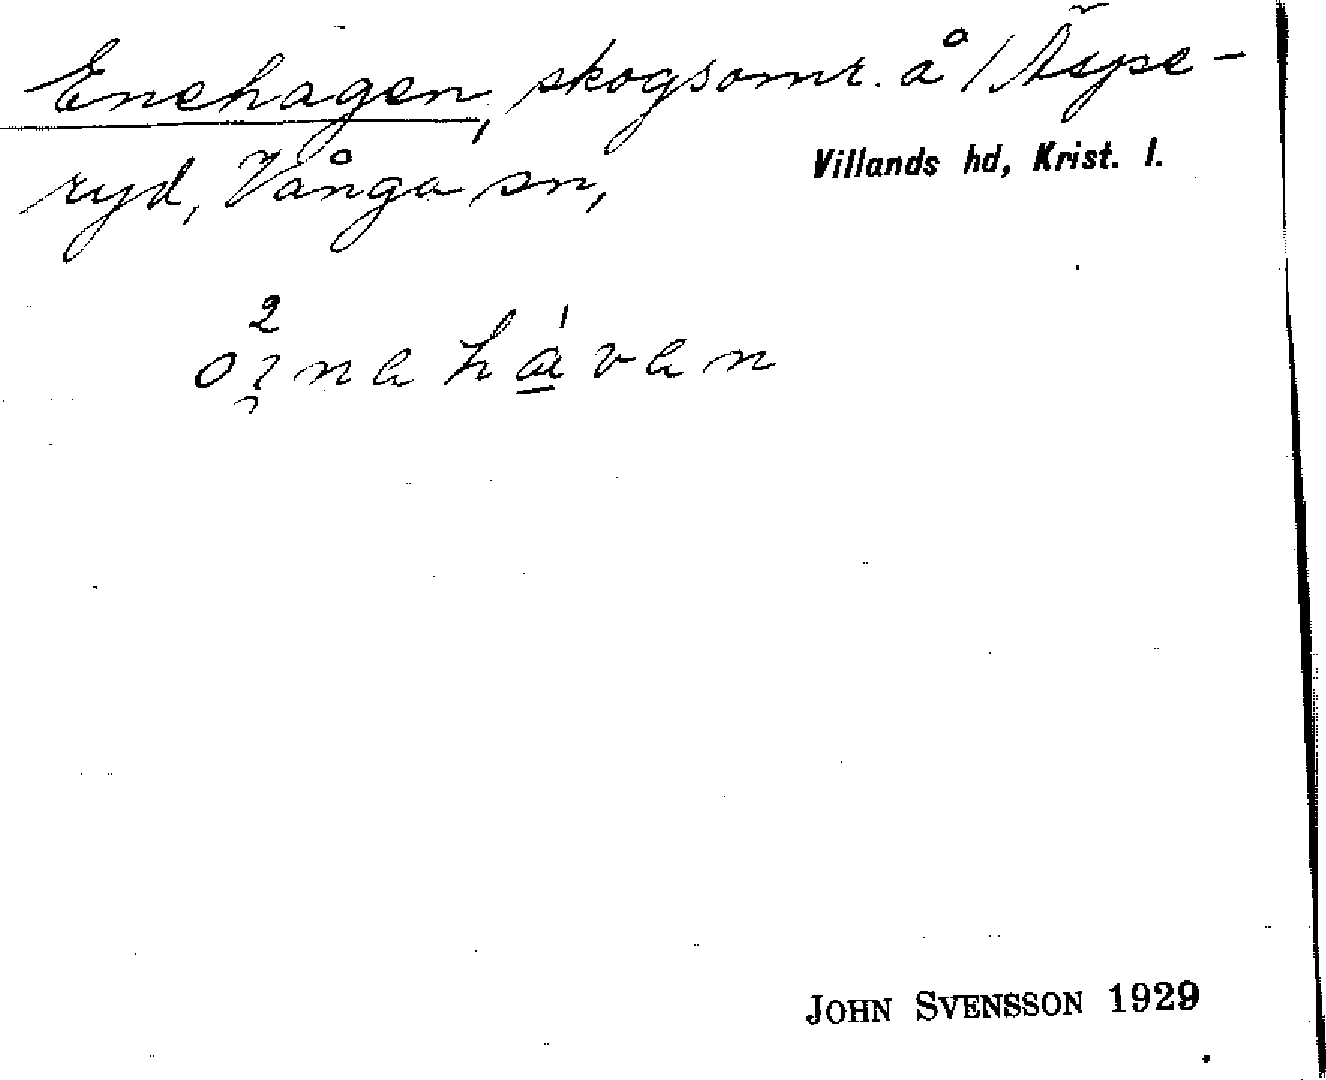 Enehagen, skogsomr. å Äspe-
ryd, Vånga sn,
Villands hd, Krist. l.
JOHN SVENSSON 1929